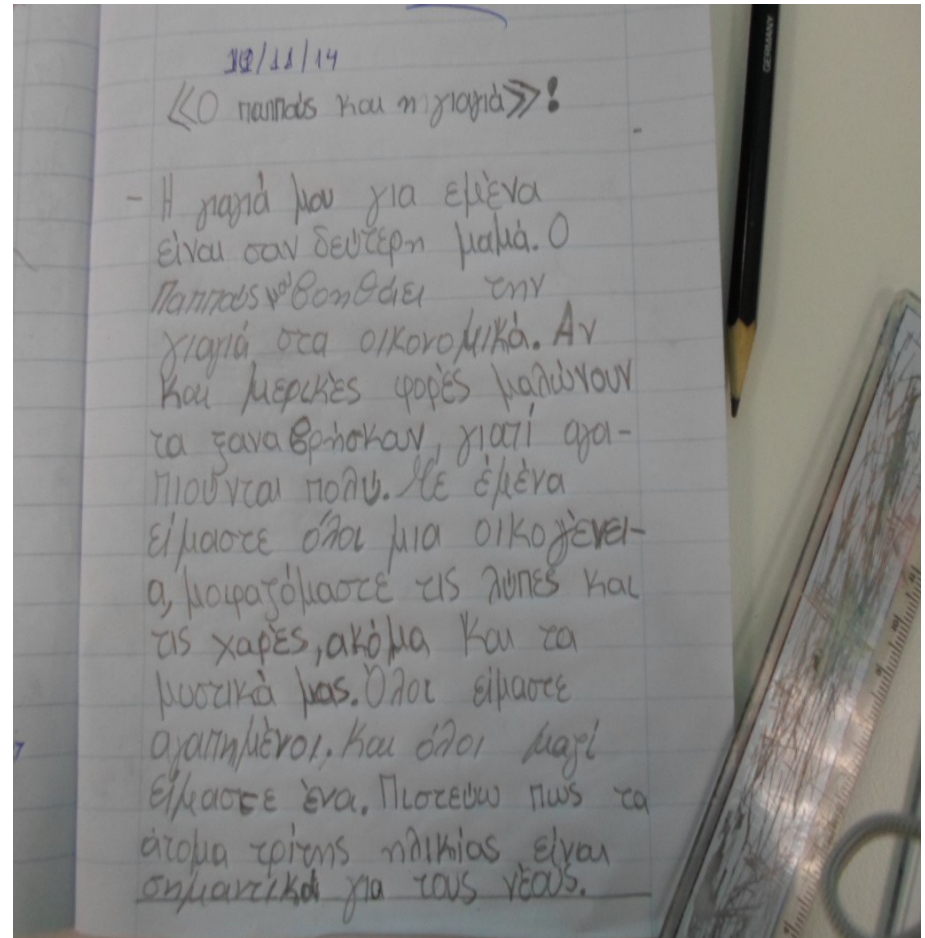 11/14
«Ο παππούς και η γιαγιά»!
- Η γιαγιά μου για εμένα
είναι σαν δεύτερη μαμά. Ο
παππούς μου βοηθάει την
γιαγιά στα οικονομικά. Αν
και μερικές φορές μαλώνουν
τα ξανα βρήσκων, γιατί αγα-
πιούνται πολύ. Με έμένα
είμαστε όλοι μια οικογένει-
α, μοιραζόμαστε τις λύπες και
τις χαρές, ακόμα και τα
μυστικά μας. Όλοι είμαστε
αγαπημένοι, και όλοι μαζί
είμαστε ένα. Πιστεύω πως τα
άτομα τρίτης ηλικίας είναι
σημαντικά για τους νέους.
GERMANY